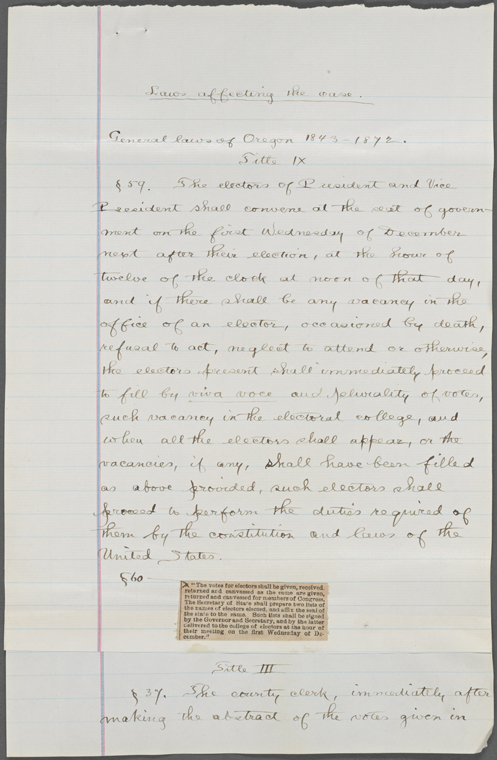 Laws affecting the case.
General laws of Oregon 1843-1872.
Title IX
§59. The electors of President and Vice
President shall convene at the seat of govern-
ment on the first Wednesday of December
next after their election, at the hour of
twelve of the clock at noon of that day,
and if there shall be any vacancy in the
office of an elector, occasioned by death,
refusal to act, neglect to attend or otherwise,
the electors present shall immediately proceed
to fill by viva voce and plurality of votes,
such vacancy in the electoral college, and
when all the electors shall appear, or the
vacancies, if any, shall have been filled
as above provided, such electors shall
proceed to perform the duties required of
them by the constitution and laws of the
United States.
§60
"The votes for electors shall be given, received,
returned and canvassed as the same are given,
returned and canvassed for members of Congress.
The Secretary of State shall prepare two lists of
the names of electors elected, and affix the seal of
the state to the same. Such lists shall be signed
by the Governor and Secretary, and by the latter
delivered to the college of electors at the hour of
their meeting on the first Wednesday of De-
cember."
Title III
§37. The county clerk, immediately after
making the abstract of the votes given in